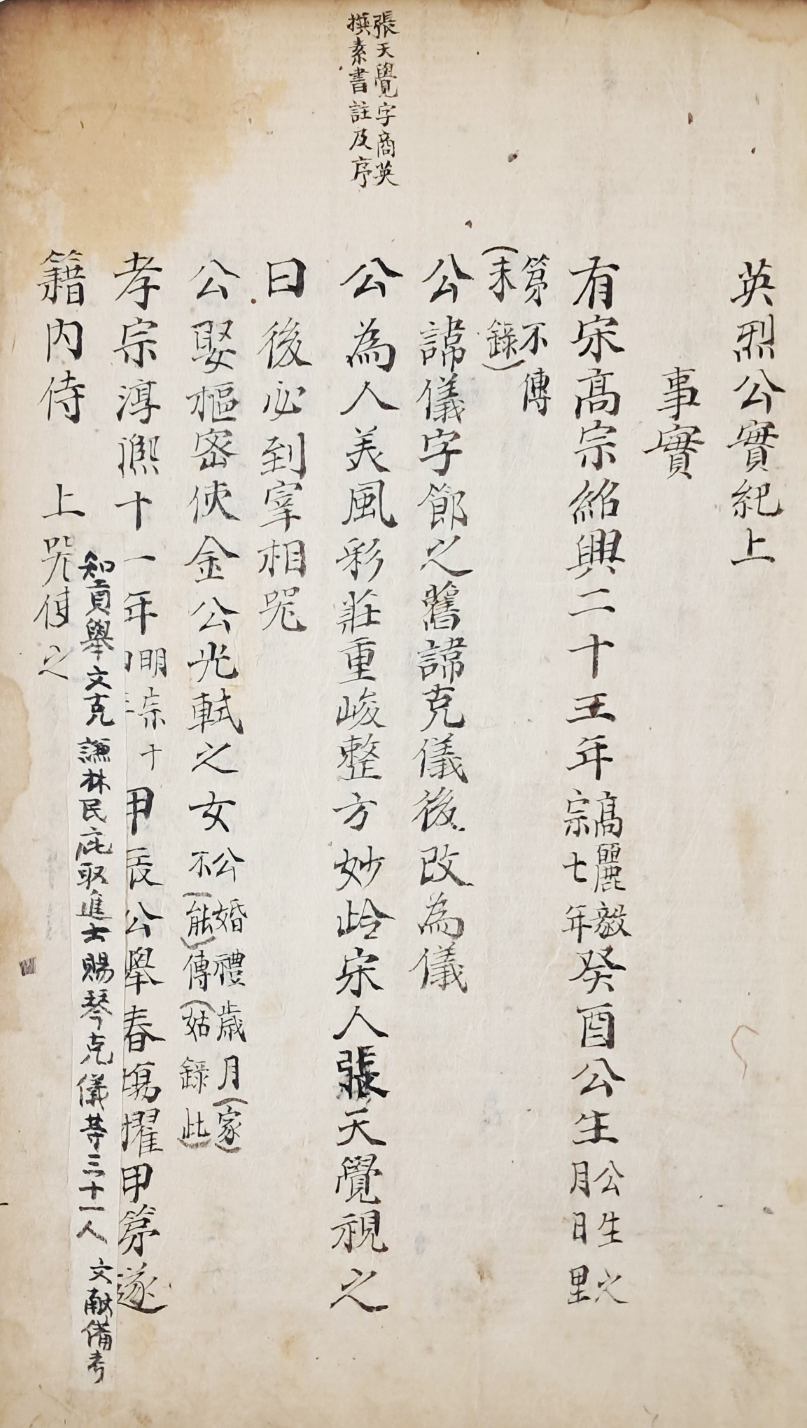 張天覺字商英
撰素書註及序
英烈公實紀上
事實
有宋高宗紹興二十五年高麗毅宗七年癸酉公生公生之月日里
第不傳(未錄)
公諱儀字節之舊諱克儀後改為儀
公為人美風彩莊重峻整方妙齡宋人張天覺視之
曰後必到宰相兕
公娶樞密使金公光軾之女公婚禮歲月(家)不(能)傳(姑錄此)
孝宗淳熙十一年明宗十年甲辰公舉春場擢甲第遂
知貢舉文克謙林民庇取進士賜琴克儀等三十一人 文献備考
籍内侍 上兕使之